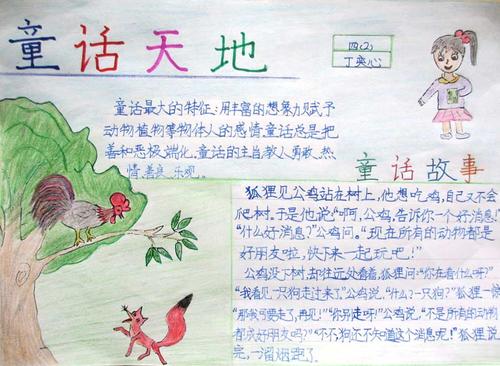 童话天地
四(2)
丁奕心
童话最大的特征:用丰富的想象力赋予
动物植物等物体人的感情童话总是把
善和恶极端化。童话的主旨教人勇敢、热
情、善良、乐观。
童话故事
狐狸见公鸡站在树上,他想吃鸡,自己又不会
爬树。于是他说:"啊,公鸡,告诉你一个好消息!"
"什么好消息?"公鸡问。"现在所有的动物都是
好朋友啦,快下来一起玩吧!"
公鸡没下树,却往远处看着,狐狸问:"你在看什么呀?"
"我看见一只狗走过来了,"公鸡说,"什么?一只狗?"狐狸一惊
"那我可要走了,再见!""你别走呀!"公鸡说,"不是所有的动物
都成好朋友吗?""不,不,狗还不知道这个消息呢!"狐狸说
完,一溜烟跑了。